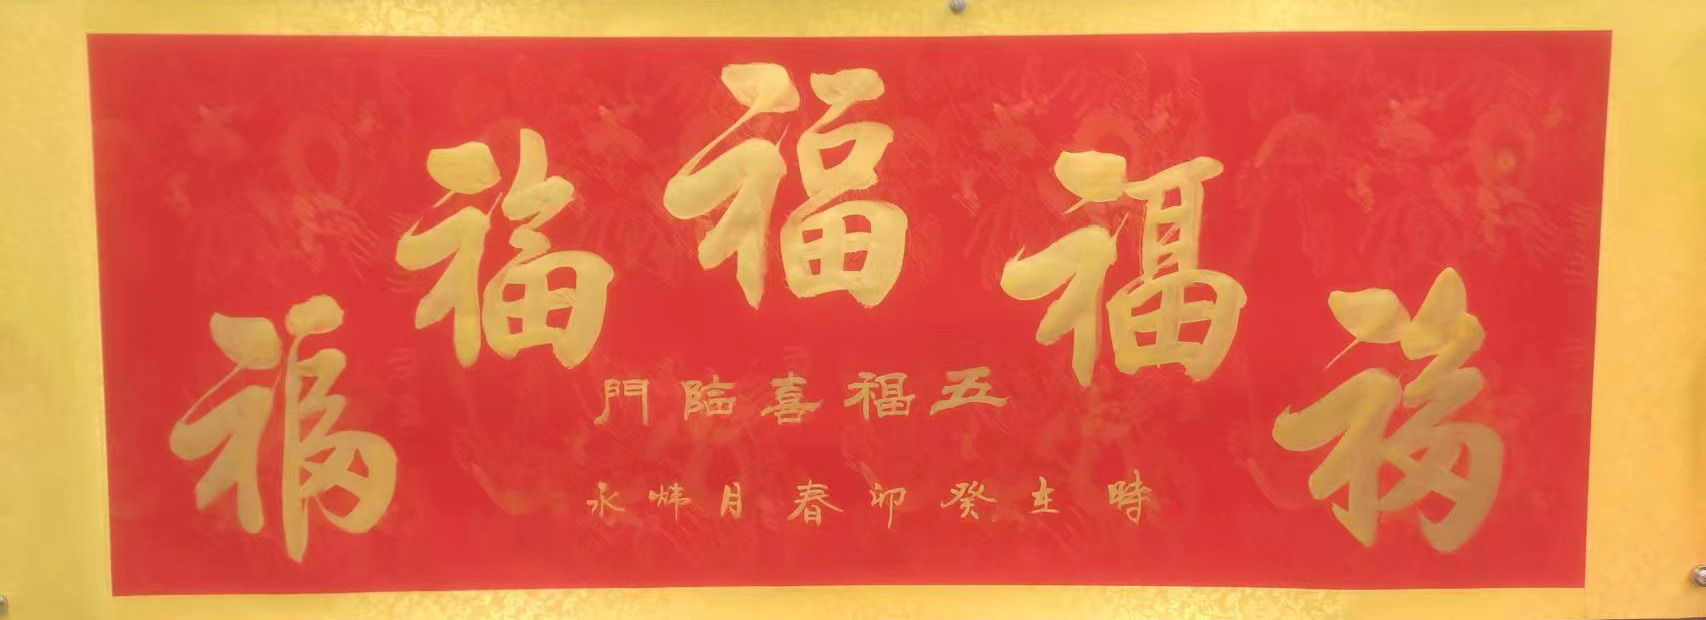 福福福福福
五福喜臨門
時在癸卯春月煒永